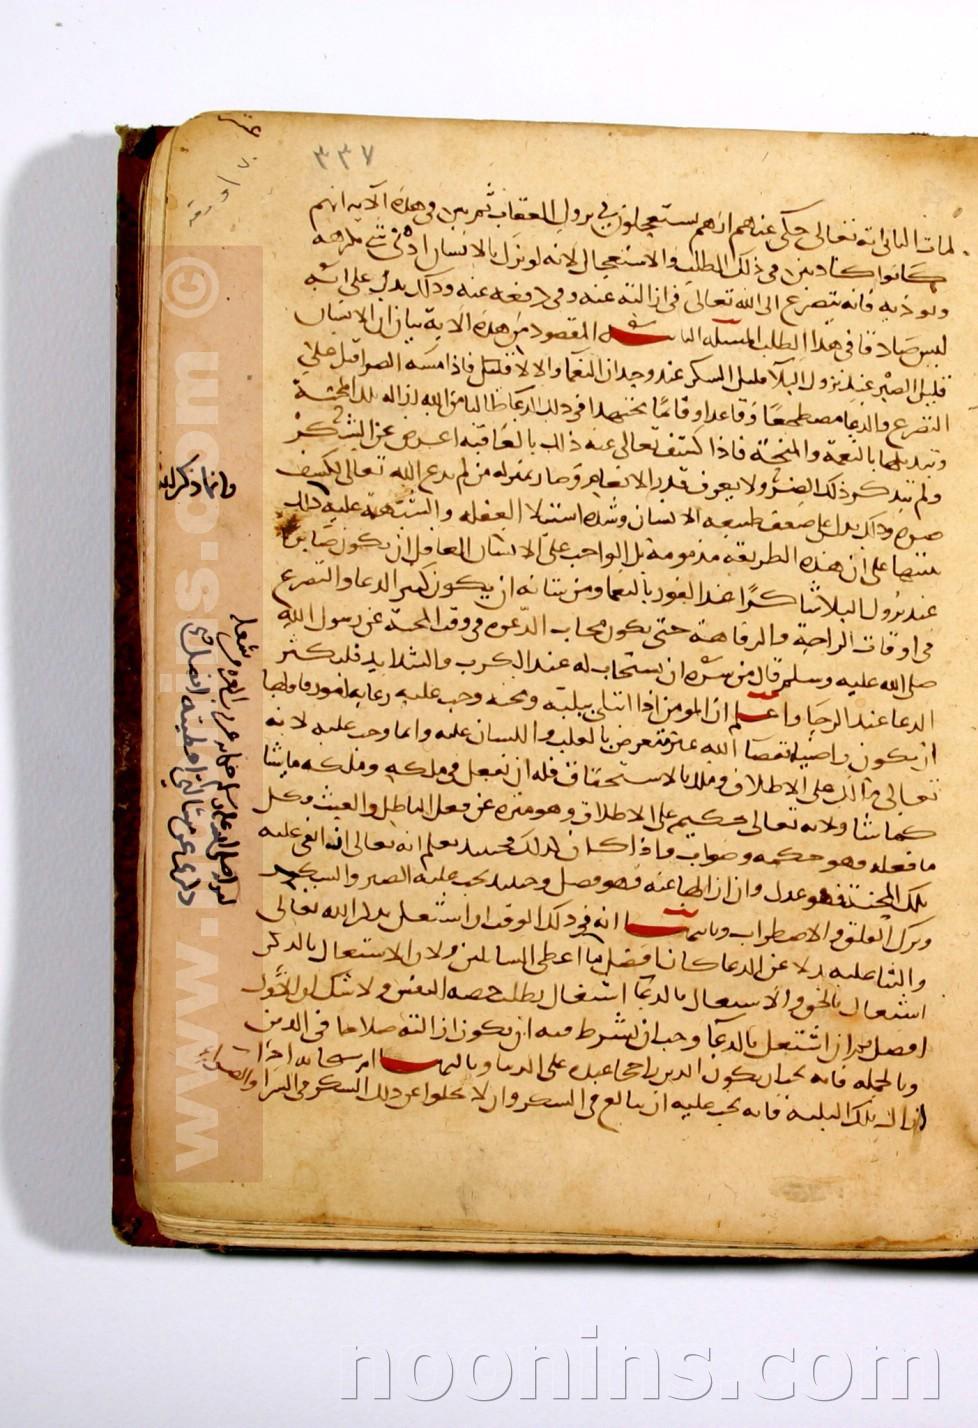 ٣٣٧
لمات الثاني انه تعالى حكى عنهم انهم يستعجلون في نزول العقاب ثم بين في هذه الآية انهم
كانوا كاذبين في ذلك الطلب والاستعجال لانه لو نزل بالانسان ادنى شي يكرهه
ويوذيه فانه يتضرع الى الله تعالى في ازالته عنه وفي دفعه عنه وذلك يدل على انه
ليس صادقا في هذا الطلب المسئله الثانيه المقصود من هذه الاية بيان ان الانسان
قليل الصبر عند نزول البلا قليل الشكر عند وجدان النعما والالا فاذا مسه الضر اقبل على
التضرع والدعا مضطجعا وقاعدا وقائما مجتهدا في ذلك الدعا طالبا من الله ازاله تلك المحنة
وتبديلها بالنعمة والمنحة فاذا كشف تعالى عنه ذلك بالعافية اعرض عن الشكر
ولم يتذكر ذلك الضر ولا يعرف قدر الانعام وصار بمنزله من لم يدع الله تعالى لكشف
ضره وذلك يدل على ضعف طبيعه الانسان وشدة استيلا الغفله والشهوة عليه ذلك
تنبيها على ان هذه الطريقه مذمومة بل الواجب على الانسان العاقل ان يكون صابرا
عند نزول البلا شاكرا عند الفوز بالنعما ومن شانه ان يكون كثير الدعا والتضرع
في اوقات الراحة والرفاهة حتى يكون مجاب الدعوه في وقت المحنة عن رسول الله
صلى الله عليه وسلم قال من سره ان يستجاب له عند الكرب والشدايد فليكثر
الدعا عند الرخا واعلم ان المومن اذا ابتلي ببلية ومحنة وجب عليه رعاية امور فاولها
ان يكون راضيا بقضا الله غير معترض بالقلب واللسان عليه وانما وجب عليه لانه
تعالى مالك على الاطلاق وملك بالاستحقاق فله ان يفعل في ملكه وملكه ما يشا
كما يشا ولانه تعالى حكيم على الاطلاق وهو منزه عن فعل الباطل والعبث وكل
ما فعله فهو حكمه وصواب واذا كان كذلك فحينئذ يعلم انه تعالى ان ابقى عليه
تلك المحنة فهو عدل وان ازالها عنه فهو فضل وحينئذ يجب عليه الصبر والسكوت
وترك القلق والاضطراب وثانيها انه في ذلك الوقت ان اشتغل بذكر الله تعالى
والثنا عليه بدلا عن الدعا كان افضل ما اعطي السائلين ولان الاشتغال بالذكر
اشتغال بالحق والاشتغال بالدعا اشتغال بطلب حصه النفس ولا شك ان الاول
افضل ثم ان اشتغل بالدعا وجب ان يشرط فيه ان يكون ازالته صلاحا في الدين
وبالجمله فانه يجب ان يكون الدين راجحا عنده على الدنيا وثالثها انه سبحانه اذا
ازال تلك البلية فانه يجب عليه ان يبالغ في الشكر وان لا يخلوا عن ذلك الشكر في السرا والضرا
وانما ذكر الله
www.noonins.com ©
noonins.com